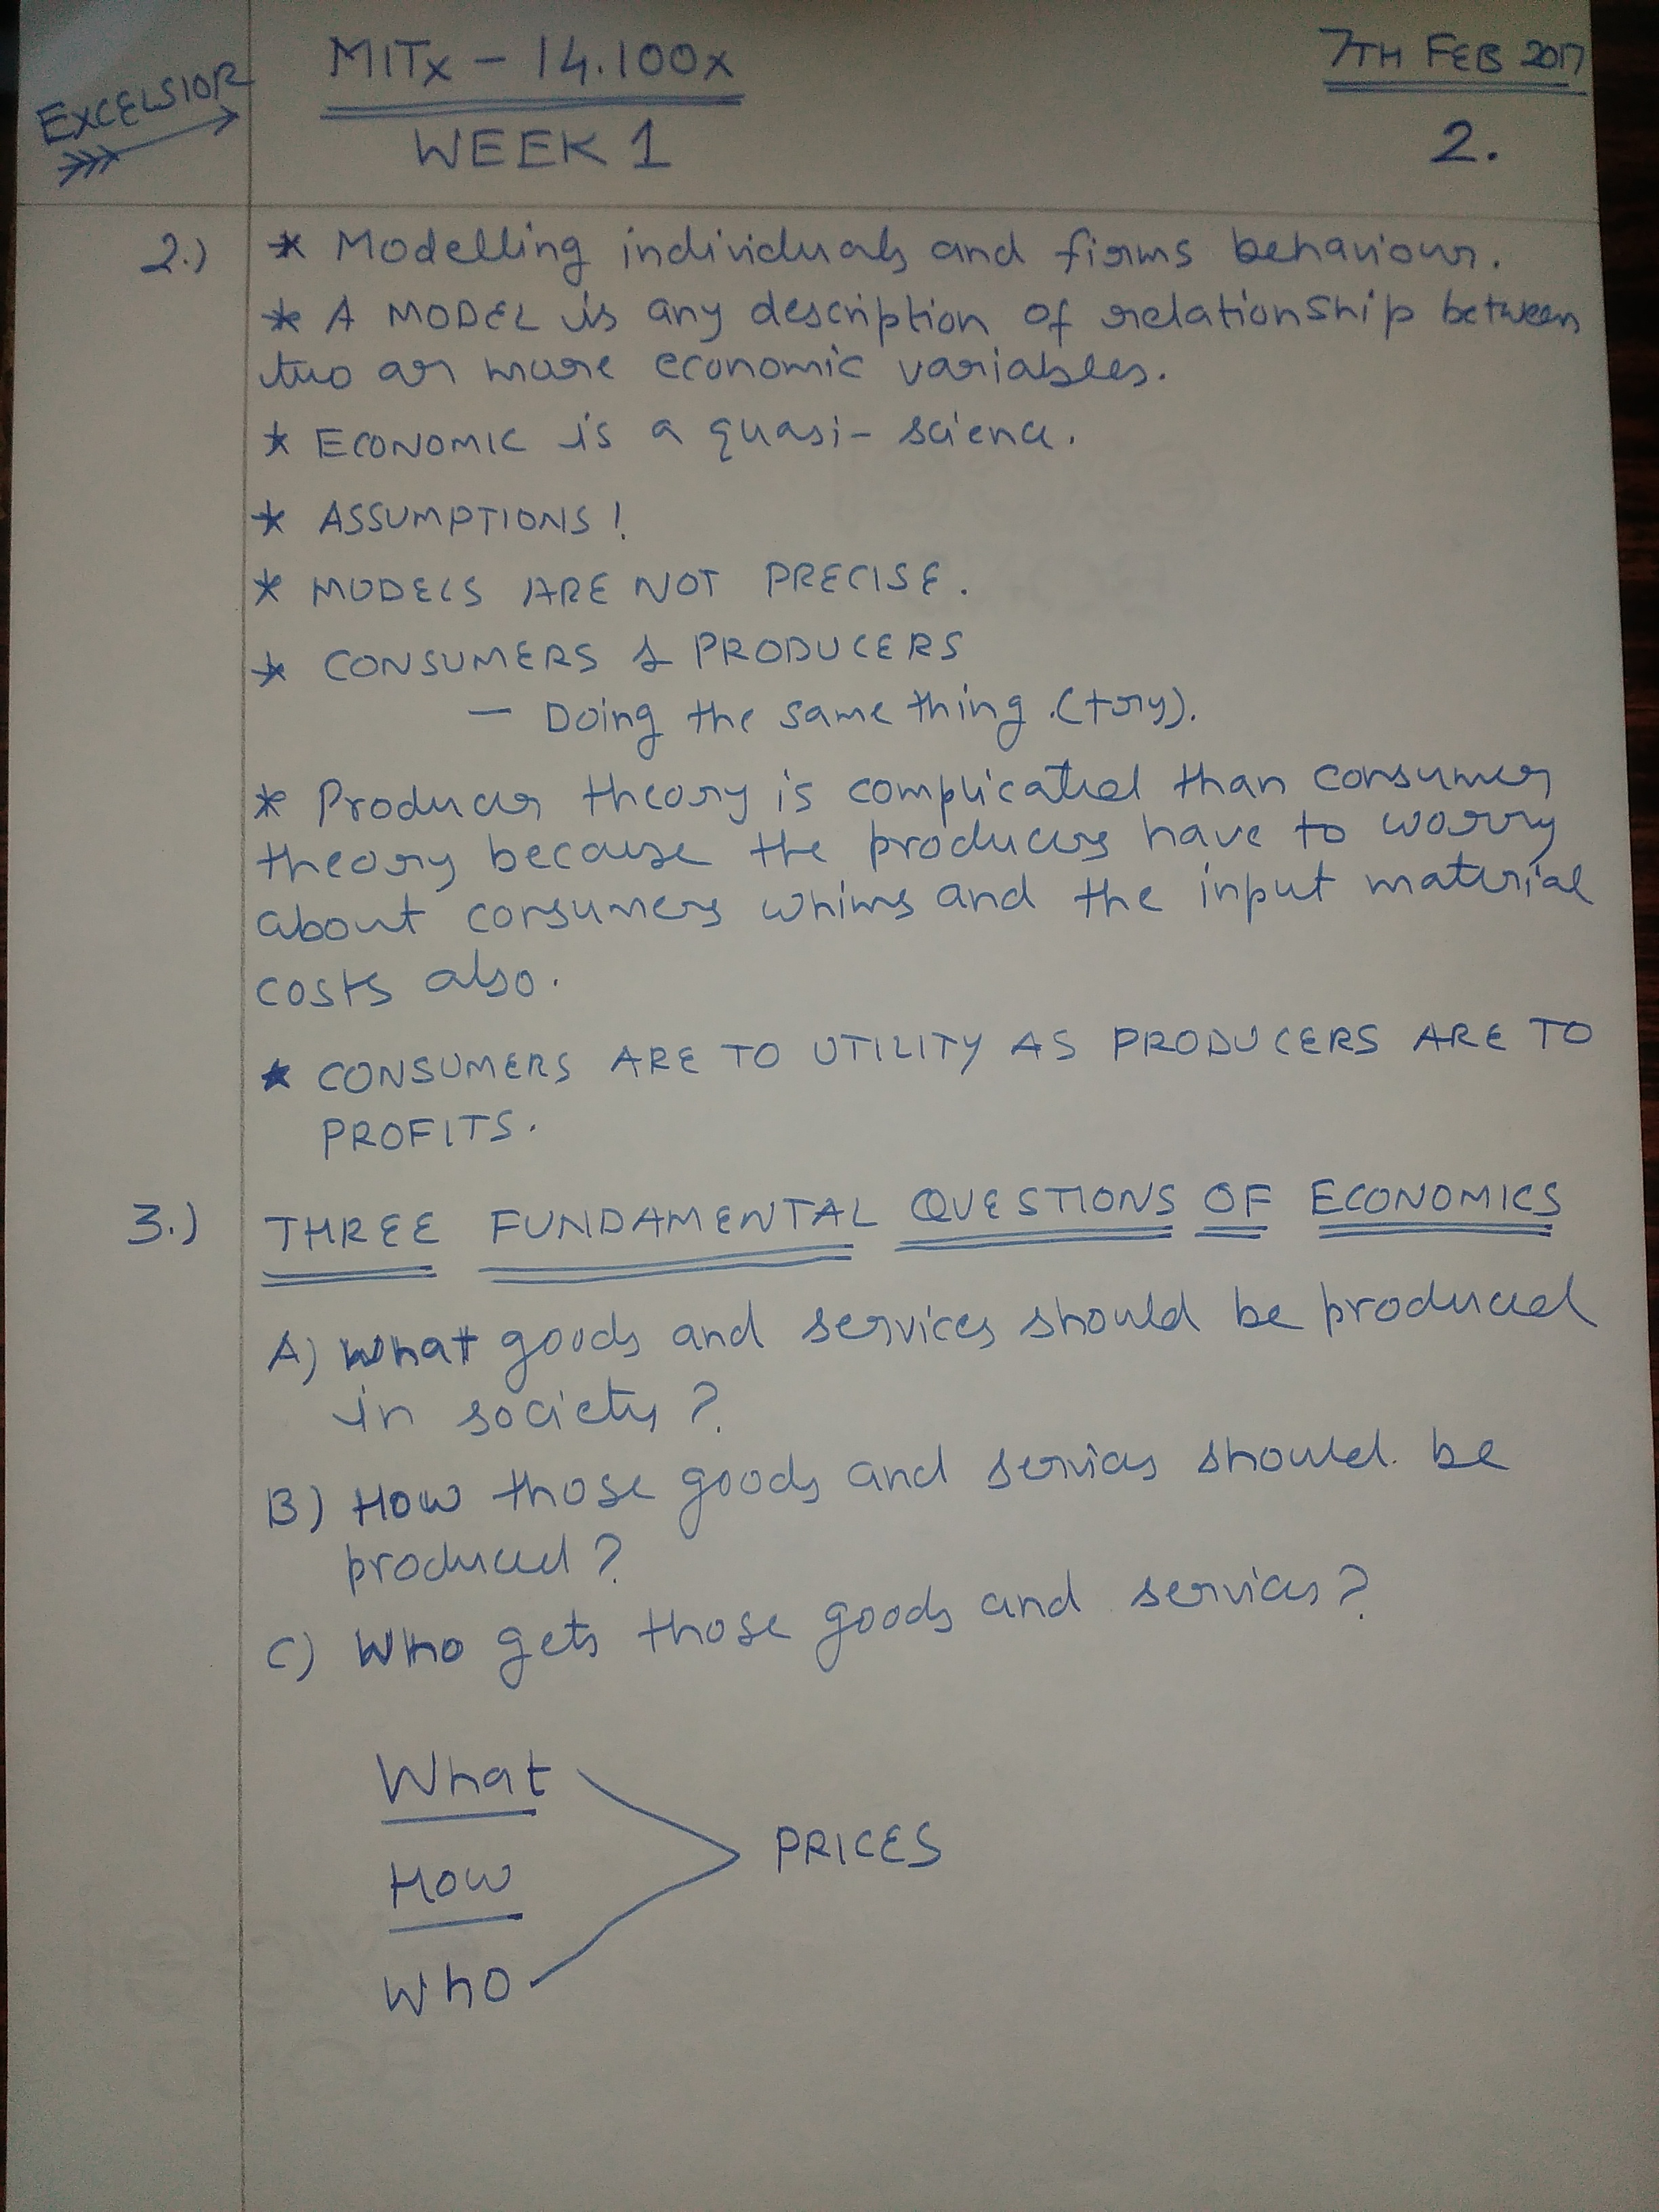 EXCELSIOR
MITx - 14.100x
7TH FEB 2017
WEEK 1
2.
2.) * Modelling individuals and firms behaviour.
* A MODEL is any description of relationship between
two or more economic variables.
* ECONOMIC is a quasi- science.
* ASSUMPTIONS!
* MODELS ARE NOT PRECISE.
* CONSUMERS & PRODUCERS
- Doing the same thing.(try).
* Producer theory is complicated than consumer
theory because the producers have to worry
about consumers whims and the input material
costs also.
* CONSUMERS ARE TO UTILITY AS PRODUCERS ARE TO
PROFITS.
3.) THREE FUNDAMENTAL QUESTIONS OF ECONOMICS
A) What goods and services should be produced
in society?
B) How those goods and services should. be
produced?
C) Who gets those goods and services?
What
PRICES
How
Who